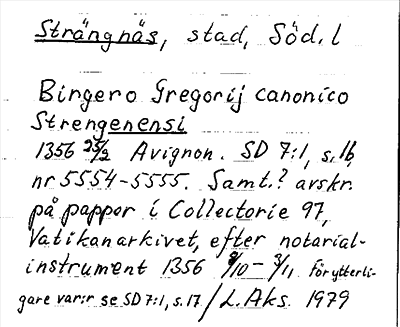 Strängnäs, stad, Söd. l
Birgero Gregorij canonico
Strengenensi
1356 25/2 Avignon. SD 7:1, s. 16
nr 5554-5555. Samt.? avskr.
på papper i Collectorie 97,
Vatikanarkivet, efter notarial-
instrument 1356 8/10 - 3/11. Förytterli-
gare var:r se SD 7:1, s. 17 / L. Aks. 1979